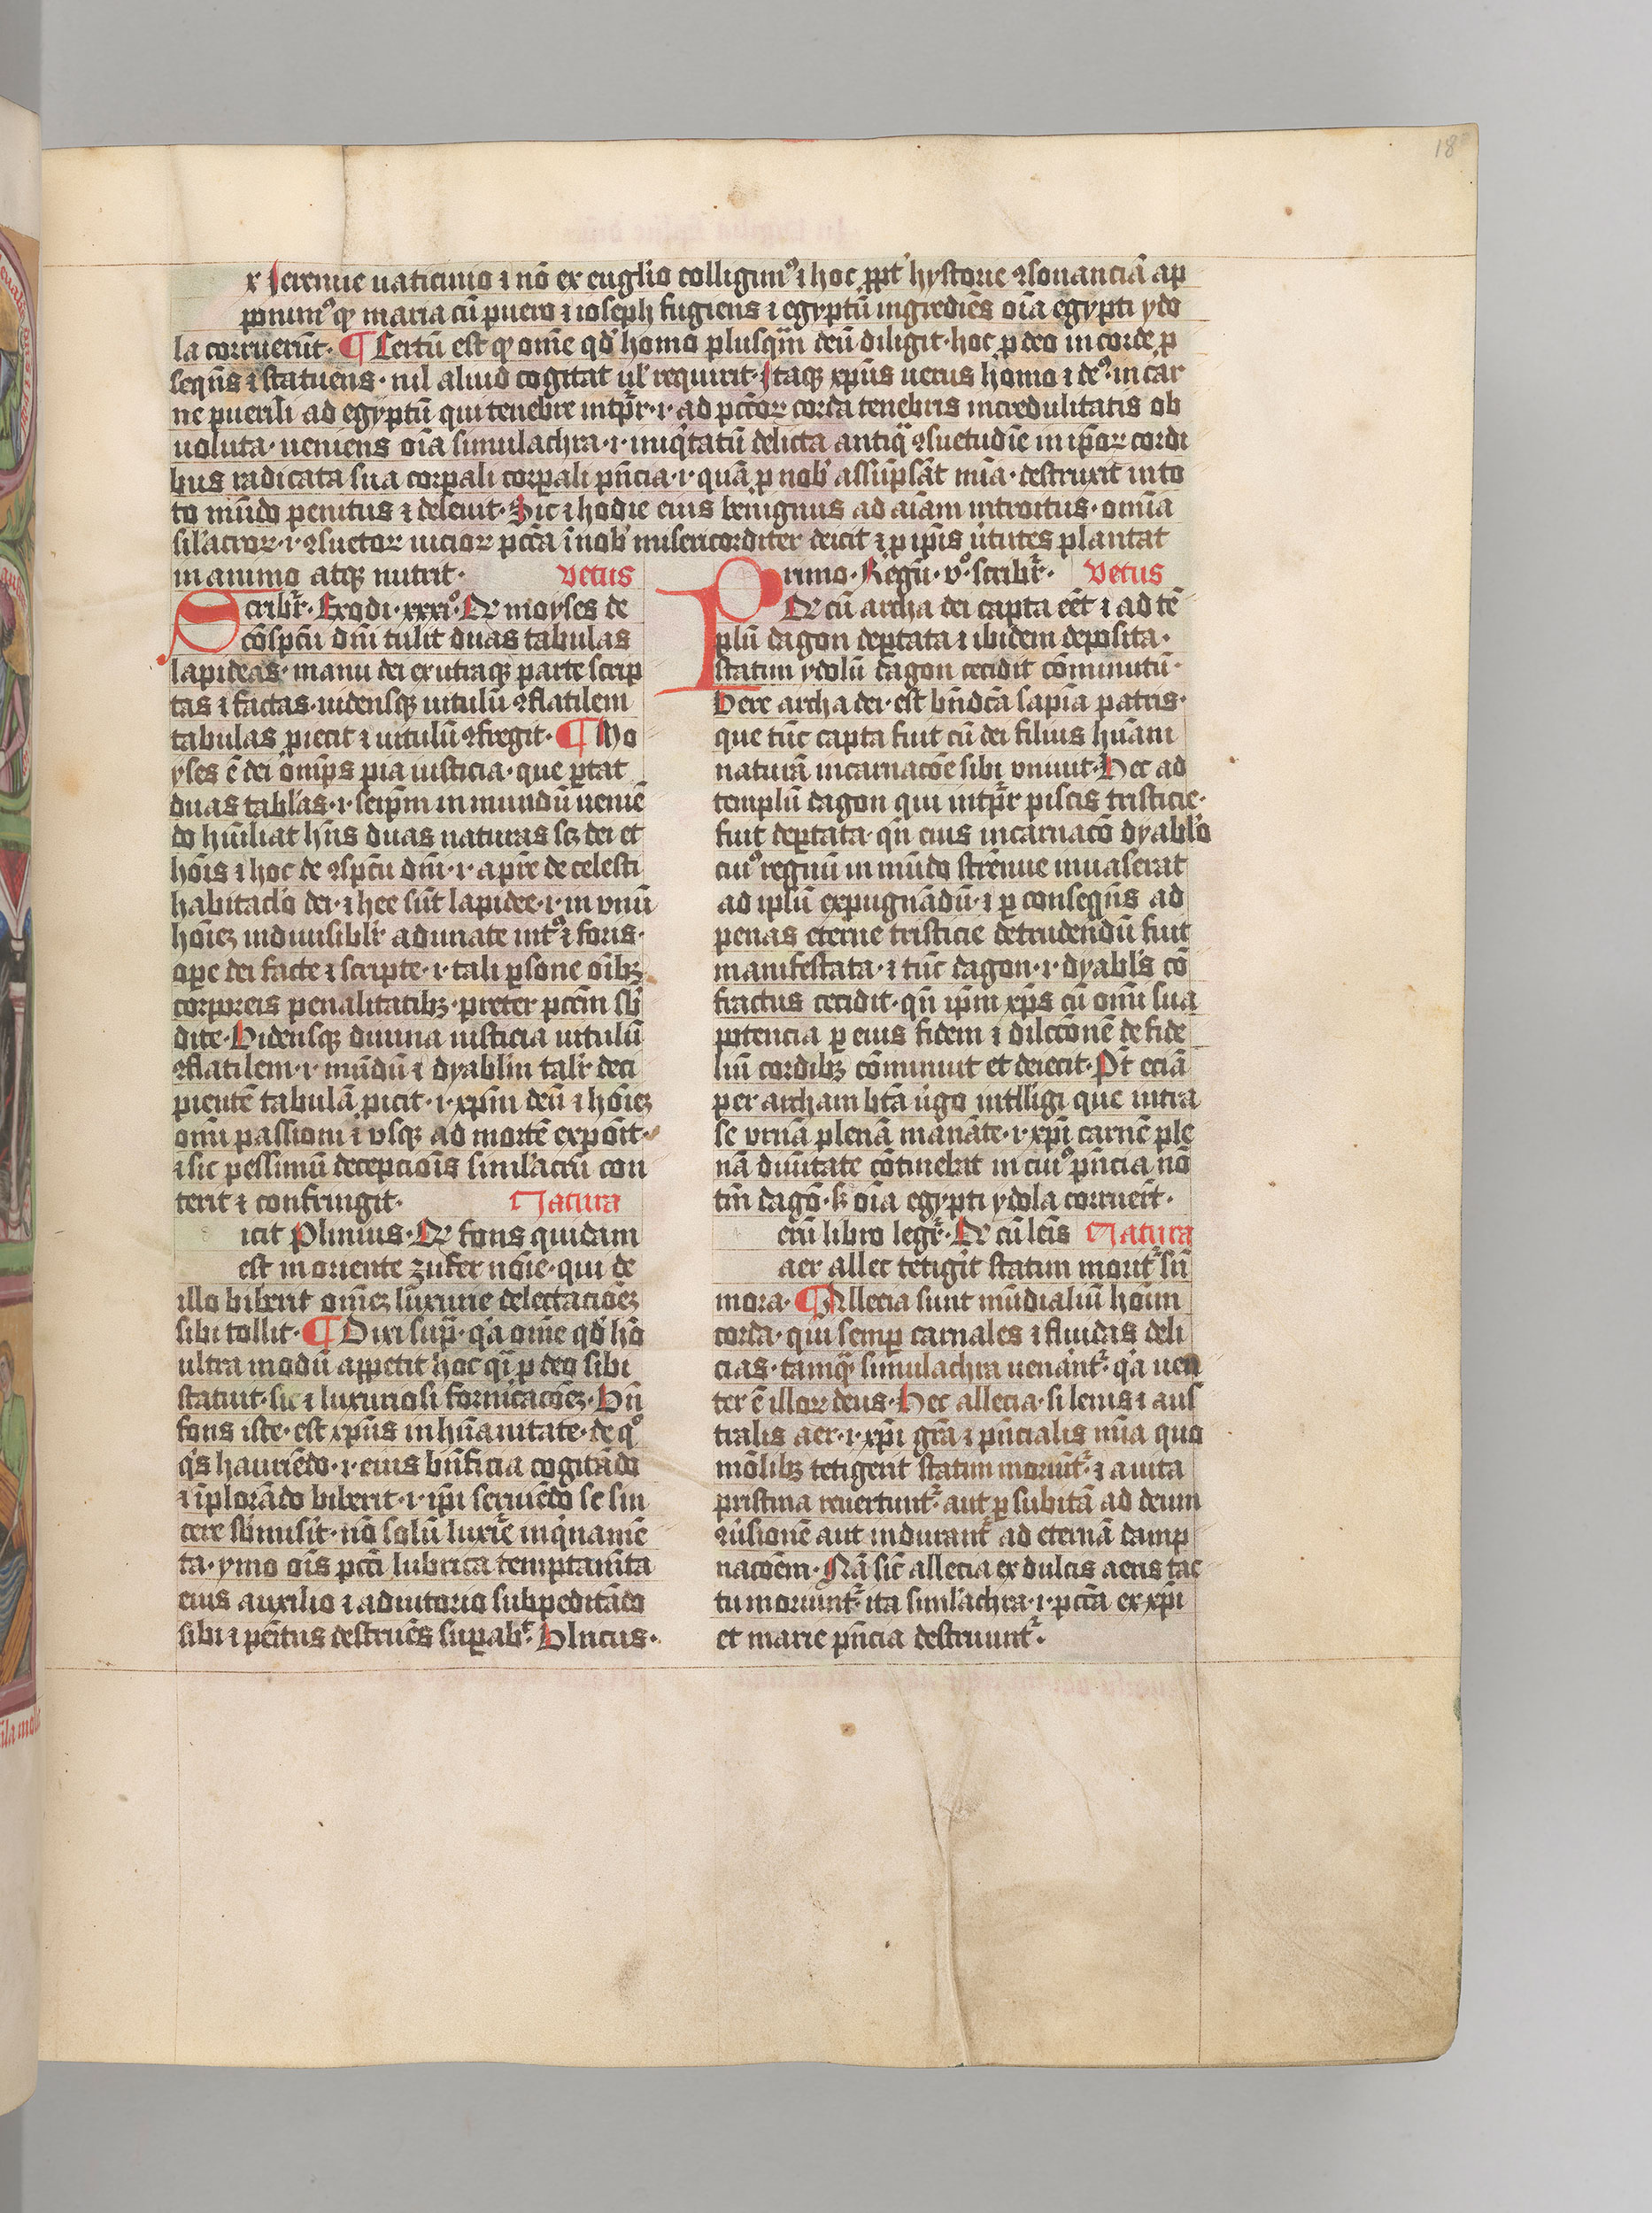 18
x Jeremie uaticinio ⁊ nō ex euglio colligim⁹ ⁊ hoc ꝓpt' hystorie ꝯsonanciā ap
ponim⁹ ꝙ maria cū puero ⁊ ioseph fugiens ⁊ egyptū ingrediēs oīa egypti ydo
la corruerūt· ¶ Certū est ꝙ om̄e qd' homo plusq̄m deū diligit· hoc p deo in corde p
seqn̄s ⁊ statuens· nil aliud cogitat ul' requirit· Itaqꝫ xp̄us uerus homo ⁊ de⁹· in car
ne puerili ad egyptū qui tenebre intp̄r·i· ad pctōꝝ corda tenebris incredulitatis ob
uoluta· ueniens oīa simulachra·i· iniq'tatū delicta antiq̄ ꝯsuetudīe in ip̄oꝝ cordi
bus radicata sua corꝑali corꝑali p̄ncia·i· quā p nob' assūpsāt mīa· destruxit in to
to mūdo penitus ⁊ deleuit· Sic ⁊ hodie eius benignus ad aīam introitus· omīa
sil'acroꝝ·i· ꝯsuetoꝝ uicioꝝ pctā ī nob' misericorditer deicit ⁊ p ip̄is ūtutes plantat
in animo atqꝫ nutrit· Vetus
Scribr̄· Exodi· xxxi⁰· Qꝛ moyses de
cōsp̄ctu dn̄i tulit duas tabulas
lapideas· manu dei ex utraqꝫ parte scrip
tas ⁊ factas· uidensqꝫ uitulū ꝯflatilem
tabulas piecit ⁊ uitulū ꝯfregit· ¶ Mo
yses ē dei om̄ips pia iusticia· que ꝑtat
duas tabl'as·i· seip̄m in mundū ueniē
do hūliat hn̄s duas naturas scꝫ dei et
hōis ⁊ hoc de ꝯsp̄ctu dn̄i·i· a pr̄e de celesti
habitacl'o dei· ⁊ hee sūt lapidee·i· in vnū
hoīeꝫ indiuisiblr̄ adunate int⁹ ⁊ foris·
oꝑe dei facte ⁊ scripte·i· tali ꝑsone oībꝫ
corporeis penalitatibꝫ· preter pctm̄ sb
dite· Vidensqꝫ diuina iusticia uitulū
ꝯflatilem·i· mūdū ⁊ dyabl'm talr̄ deci
pientē tabulā picit·i· xp̄m deū ⁊ hoīeꝫ
omī passioni ⁊ vsqꝫ ad mortē expōit·
⁊ sic pessimū decepciōis simil'acrū con
terit ⁊ confringit· Natura
icit Plinius· Qꝛ fons quidam
est in oriente zufer noīe· qui de
illo biberit om̄eꝫ luxurie delectaciōeꝫ
sibi tollit· ¶ Dixi sup̄· q'a om̄e qd' hō
ultra modū appetit hoc q̄i p deo sibi
statuit· sic ⁊ luxuriosi fornicacōeꝫ· Vn̄
fons iste· est xp̄us in hūanitate· de q⁰
q's hauriēdo·i· eius bn̄ficia cogitādo
⁊ īplorādo biberit·i· ip̄i seruiēdo se sin
cere sb̄misit· nō solū luxr̄ie inq'namē
ta· ymo oīs pcti lubrica temptam̄ta
eius auxilio ⁊ adiutorio subpeditādo
sibi ⁊ pēitus destruēs supabᵗ· Vlncus·
Primo· Regū· v⁰· scribr̄· Vetus
Qꝛ cū archa dei capta eēt ⁊ ad tē
plū dagon deꝑtata ⁊ ibidem deposita·
statim ydolū dagon cecidit cōminutū·
Hec archa dei· est bn̄dcā sapīa patris·
que tūc capta fuit cū dei filius hūam
naturā incarnacōe sibi vniuit· Hec ad
templū dagon qui intp̄r piscis tristicie·
fuit deꝑtata· qn̄ eius incarnacō dyabl'o
cui⁹ regnū in mūdo strenue inuaserat
ad ip̄lū expugnādū· ⁊ p conseqn̄s ad
penas eterne tristicie detrudendū fuit
manifestata· ⁊ tūc dagon·i· dyabl's cō
fractus cecidit· qn̄ ip̄m xp̄s cū omī sua
potencia p eius fidem ⁊ dilcc̄onē de fide
liū cordibꝫ cōminuit et deiecit· Pt̄ eciā
per archam btā ūgo intlligi que intra
se vrnā plenā mānate·i· xp̄i carnē ple
nā diuītate cōtinebat in cui⁹ p̄ncia nō
tm̄ dagō· sꝫ oīa egypti ydola corruerūt·
eciū libro legr̄· Qꝛ cū lēis Natura
aer allec tetigit statim moritʳ sn̄
mora· ¶ Allecia sunt mūdialiū hoīm
corda· qui semp carnales ⁊ fluidas deli
cias· tamq̄ simulachra uenāntʳ· q'a uen
ter ē illoꝝ deus· Hec allecia· si lenis ⁊ aus
tralis aer·i· xp̄i grā ⁊ p̄ncialis mīa quo
mōlibꝫ tetigerit statim moriūtʳ· ⁊ a uita
pristina reuertuntʳ· aut p subitā ad deum
ꝯūsionē aut indurantʳ ad eternā damp
nacōem· Nā sic̄ allecia ex dulcis aeris tac
tu moriuntʳ· ita simil'achra·i· pctā ex xp̄i
et marie p̄ncia destruuntʳ·